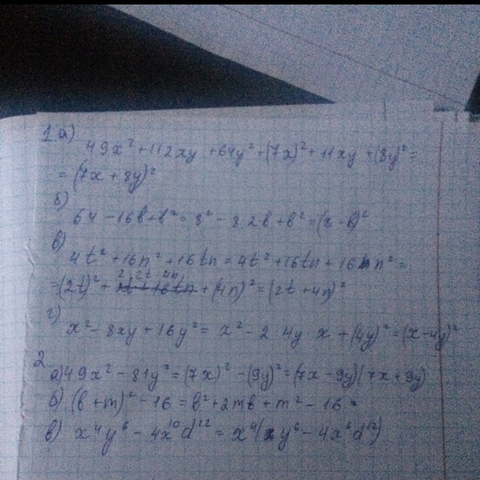 1.а)
49x² + 112xy + 64y² = (7x)² + 11xy + (8y)² =
= (7x + 8y)²
б)
64 - 16b + b² = 8² - 8·2b + b² = (8 - b)²
в)
4t² + 16n² + 16tn = 4t² + 16tn + 16n² =
= (2t)² + 2(2t·4n) + (4n)² = (2t + 4n)²
г)
x² - 8xy + 16y² = x² - 2·4y x + (4y)² = (x - 4y)²
2.
а) 49x² - 81y² = (7x)² - (9y)² = (7x - 9y)(7x + 9y)
б) (b + m)² - 16 = b² + 2mb + m² - 16 =
в) x⁴y⁶ - 4x¹⁰d¹² = x⁴(y⁶ - 4x⁶d¹²)